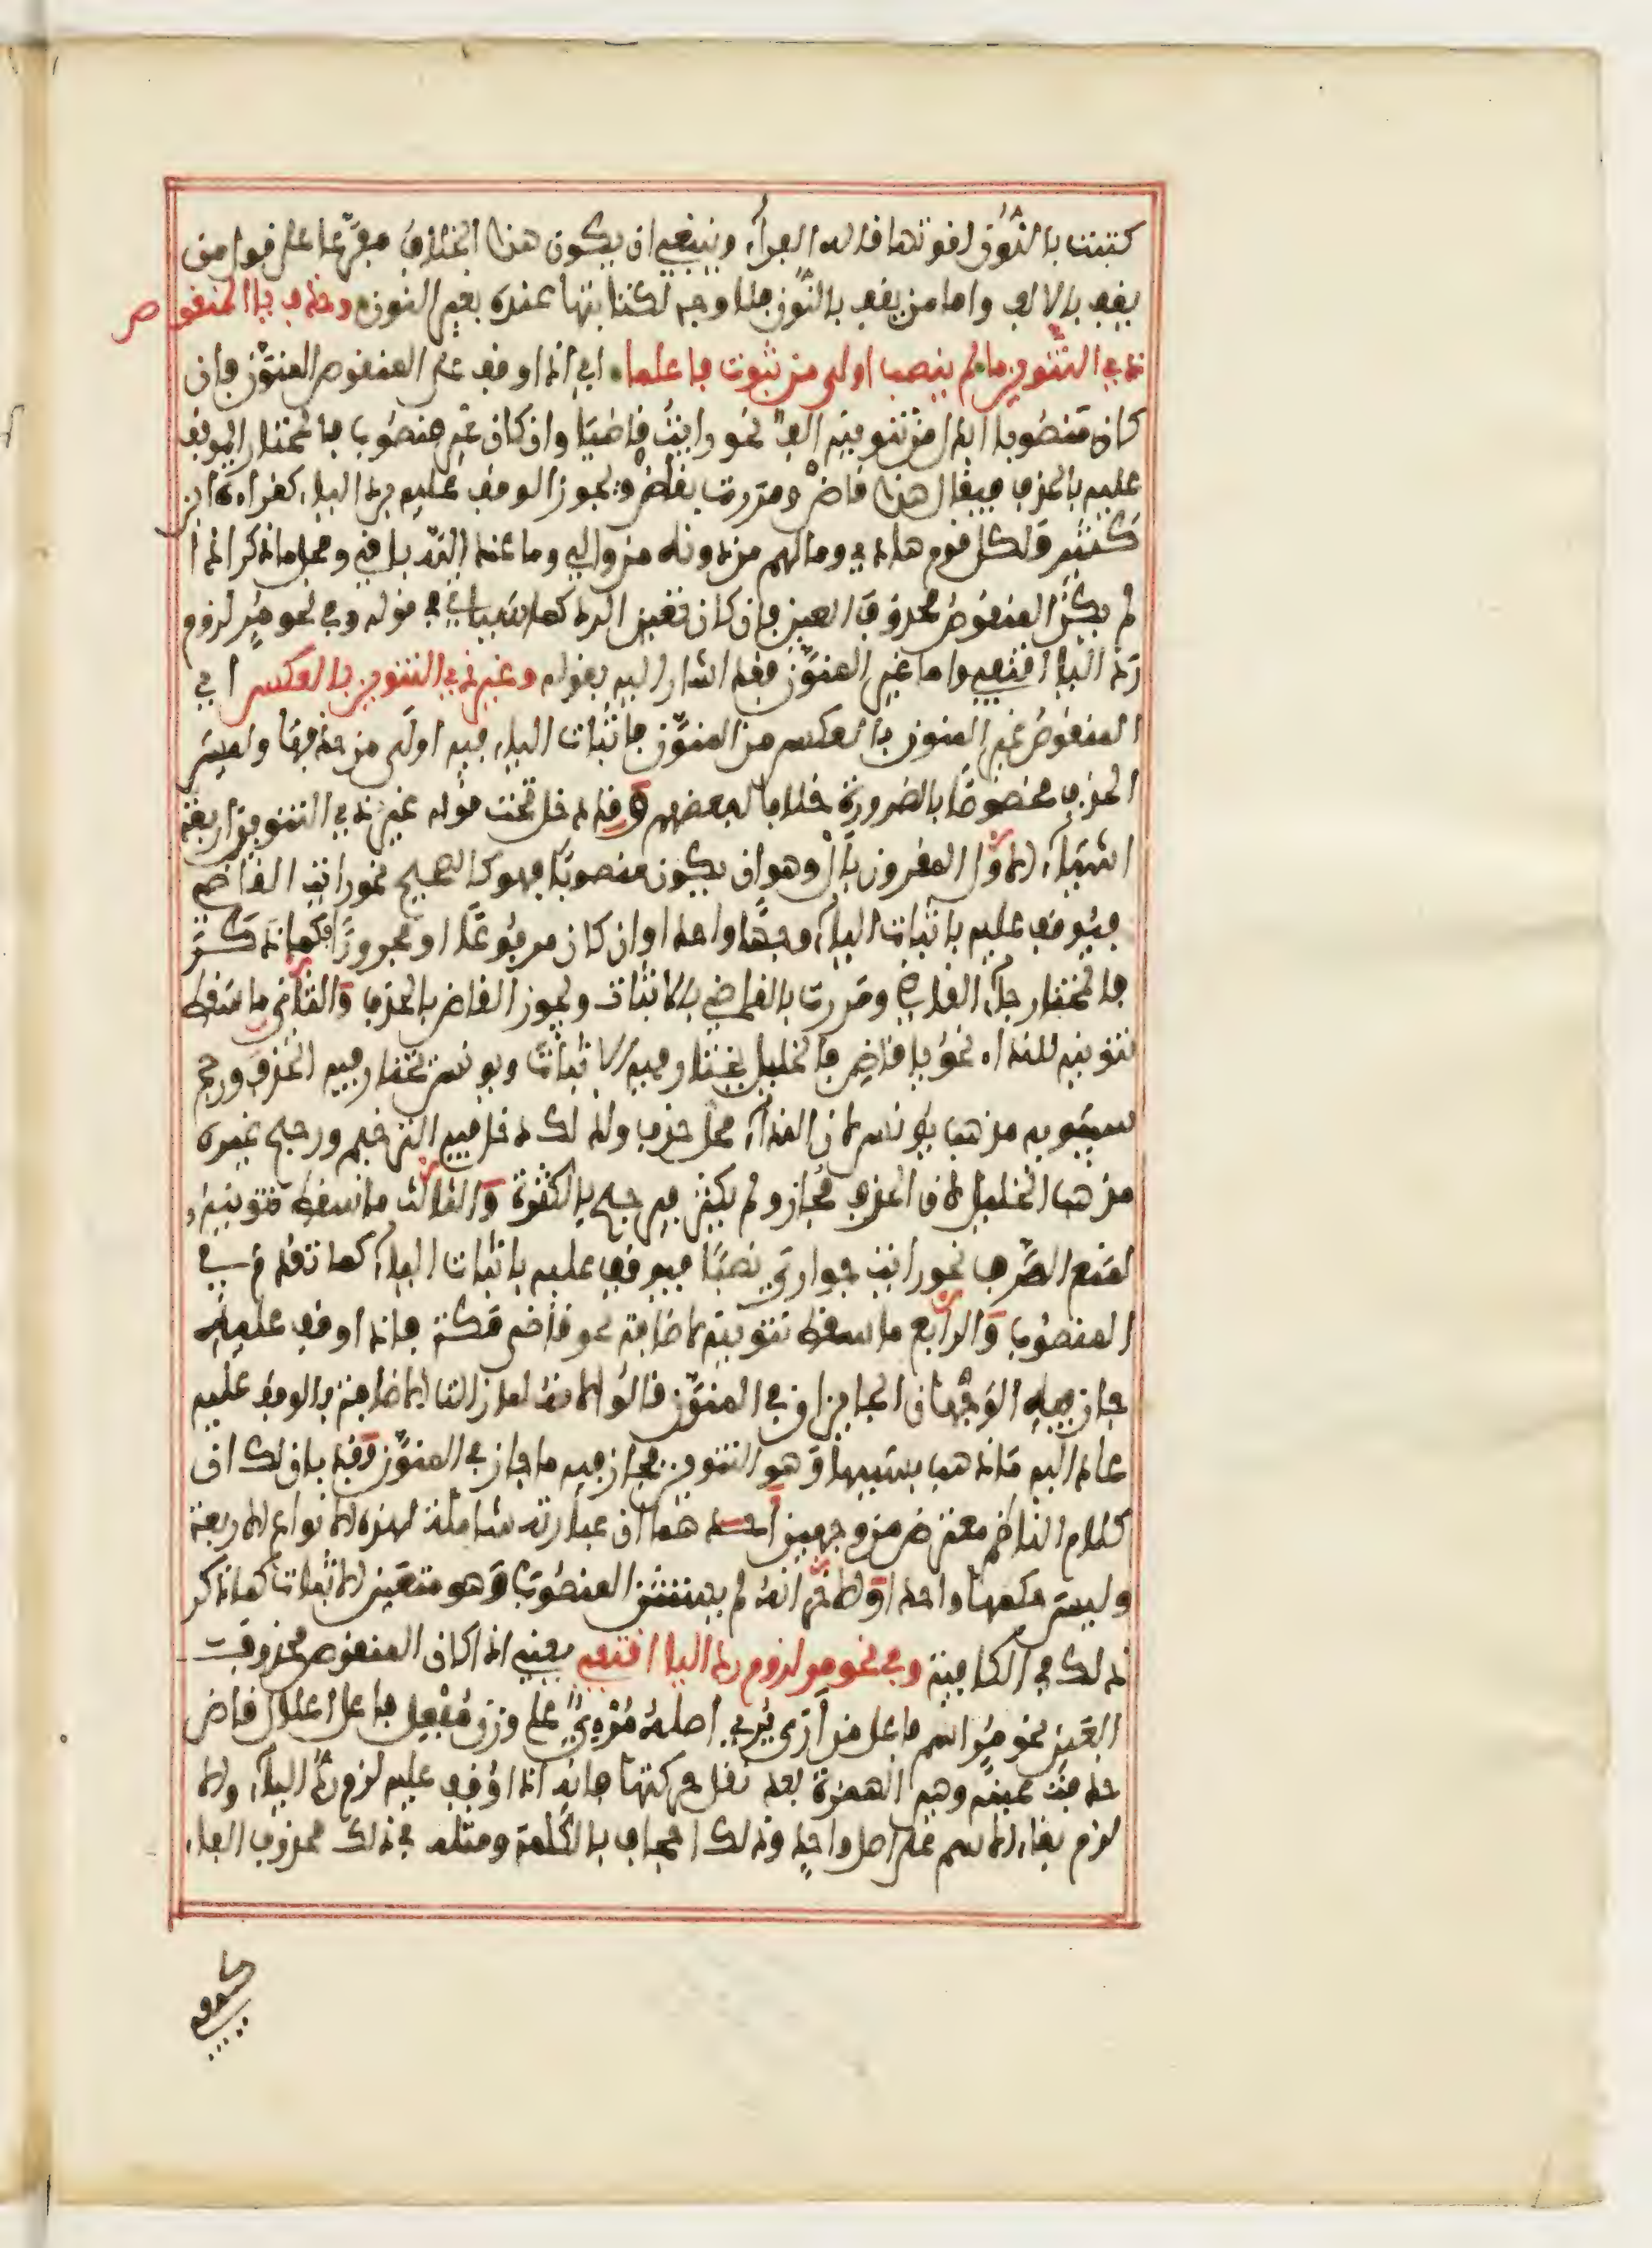 كتبت بالنون لقوتها قاله الفراء وينبغي ان يكون هذا الخلاف مفرعا على قول من
يقف بالالف واما من يقف بالنون فلا وجه لكتابتها عنده بغير النون وحذف يا المنقوص
ذي التنوين ما لم ينصب اولى من ثبوت فاعلما اي اذا وقف على المنقوص المنون فان
كان منصوبا ابدل من تنوينه الف نحو رايت قاضيا وان كان غير منصوب فالمختار الوقف
عليه بالحذف فيقال هذا قاض ومررت بقاض ويجوز الوقف عليه برد الياء كقراءة ابن
كثير ولكل قوم هادي وما لهم من دونه من والي وما عند الله باقي ومحل ما ذكر اذا
لم يكن المنقوص محذوف العين فان كان تعين الرد كما سياتي في قوله وفي نحو مر لزوم
رد اليا اقتفي واما غير المنون فقد اشار اليه بقوله وغير ذي التنوين بالعكس اي
المنقوص غير المنون بالعكس من المنون فاثبات الياء فيه اولى من حذفها وليس
الحذف مخصوصا بالضرورة خلافا لبعضهم وقد دخل تحت قوله غير ذي التنوين اربعة
اشياء الاول المقرون بال وهو ان يكون منصوبا فهو كالصحيح نحو رايت القاضي
فيوقف عليه باثبات الياء وجها واحدا وان كان مرفوعا او مجرورا فكما ذكر
فالمختار جاء القاضي ومررت بالقاضي بالاثبات ويجوز القاض بالحذف والثاني ما سقط
تنوينه للنداء نحو يا قاضي فالخليل يختار فيه الاثبات ويونس يختار فيه الحذف ورجح
سيبويه مذهب يونس لان النداء محل حذف ولذلك دخل فيه الترخيم ورجح غيره
مذهب الخليل لان الحذف مجاز ولم يكثر فيرجح بالكثرة والثالث ما سقط تنوينه
لمنع الصرف نحو رايت جواري نصبا فيوقف عليه باثبات الياء كما تقدم في
المنصوب والرابع ما سقط تنوينه لاضافته نحو قاضي مكة فاذا وقف عليه
جاز فيه الوجهان الجايزان في المنون قالوا لانه لما زالت الاضافة بالوقف عليه
عاد اليه ما ذهب بسببها وهو التنوين فجاز فيه ما جاز في المنون وقد بان لك ان
كلام الناظم معترض من وجهين احدهما ان عبارته شاملة لهذه الانواع الاربعة
وليس حكمها واحدا والاخر انه لم يستثن المنصوب وهو متعين الاثبات كما ذكر
ذلك في الكافية وفي نحو مر لزوم رد اليا اقتفي يعني اذا كان المنقوص محذوف
العين نحو مر اسم فاعل من ارى يري اصله مرءي على وزن مفعل فاعل اعلال قاض
حذفت عينه وهي الهمزة بعد نقل حركتها فانه اذا وقف عليه لزم رد الياء والا
لزم بقاء الاسم على اصل واحد وذلك اجحاف بالكلمة ومثله في ذلك محذوف الفاء